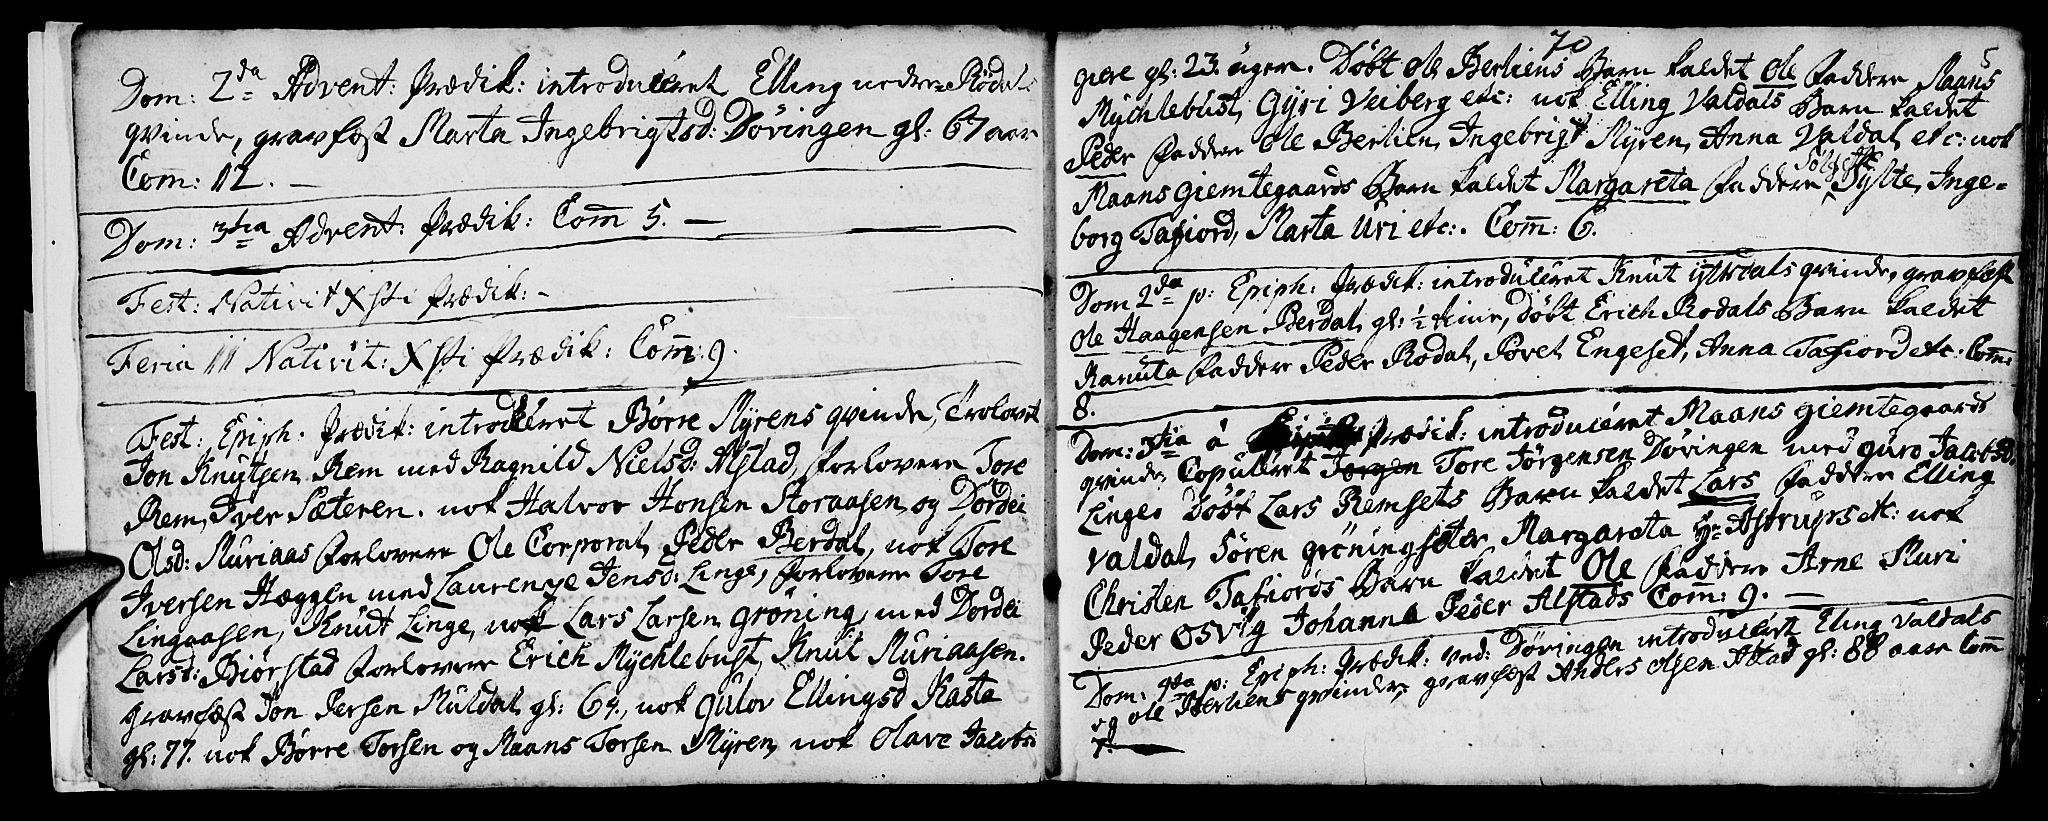 Dom: 2da Advent: Prædik: introduceret Elling nedre Rødals
qvinde, gravfæst Marta Ingebrigtsd: Døvingen gl: 67 aar
Com: 12. —
Dom: 3tia Advent: Prædik: Com̅ 5. —
Fest: Nativit Xsti Prædik: -
Feria 11 Nativit: Xsti Prædik: Com̅: 9.
Fest: Epiph. Prædik: introduceret Børre Myrens qvinde, Trolovet
Jon Knutsen Rem med Ragnild Nielsd: Alstad, Forlovere Tore
Rem, Iver Sæteren. nok Halvor Hansen Storaasen og Dordei
Olsd: Muriaas Forlovere Ole Corporal, Peder Berdal, nok Tore
Iversen Hæggen med Laurenze Jensd: Linge, Forlovere Tore
Lingaasen, Knut Linge, nok Lars Larsen Grøning, med Dordei
Larsd: Biørstad Forlovere Erich Mychlebust, Knut Muriaasen.
gravfæst Jon Persen Muldal gl: 64., nok Gulov Ellingsd Kasta
gl: 77. nok Børre Torsen og Maans Torsen Myren, nok Olave Jacobsd
70
5
giere gl: 23. uger. Døbt Ole Berliens Barn kaldet Ole Faddere Maans
Mychlebust, Gyri Veiberg etc: nok Elling Valdals Barn kaldet
Peder Faddere Ole Berlien, Ingebrigt Myren, Anna Valdal, etc: nok
Maans Giemtegaards Barn kaldet Margareta Faddere Sylte, Inge-
borg Tafiord, Marta Uri etc:. Com̅: 6.
Dom 2da p: Epiph: Prædik: introduceret Knut Ytterdals qvinde, gravfæst
Ole Haagensen Berdal, gl: ½ time, Døbt Erich Rodals Barn kaldet
Ranuta Faddere Peder Rodal, Povel Engeset, Anna Tafiord etc: Com̅:
8.
Dom: 3tia á Prædik: introduceret Maans Giemtegaards
qvinde, Copuleret Jørgen Tore Jørgensen Døvingen med Guro Jacobsd.
Linge. Døbt Lars Remsets Barn kaldet Lars Faddere Elling
Valdal, Søren Grøningsæter Margareta Hr Astrups etc: nok
Christen Tafiords Barn kaldet Ole Faddere Arne Muri
Peder Osvig Johanna Peder Alstads Com: 9. —
Dom: 4ta p: Epiph: Prædik: ved: Døvingen introduceret Eling Valdals
og Ole Berliens qvinder, gravfæst Anders Olsen Alstad gl: 88 aar Com̅
7.